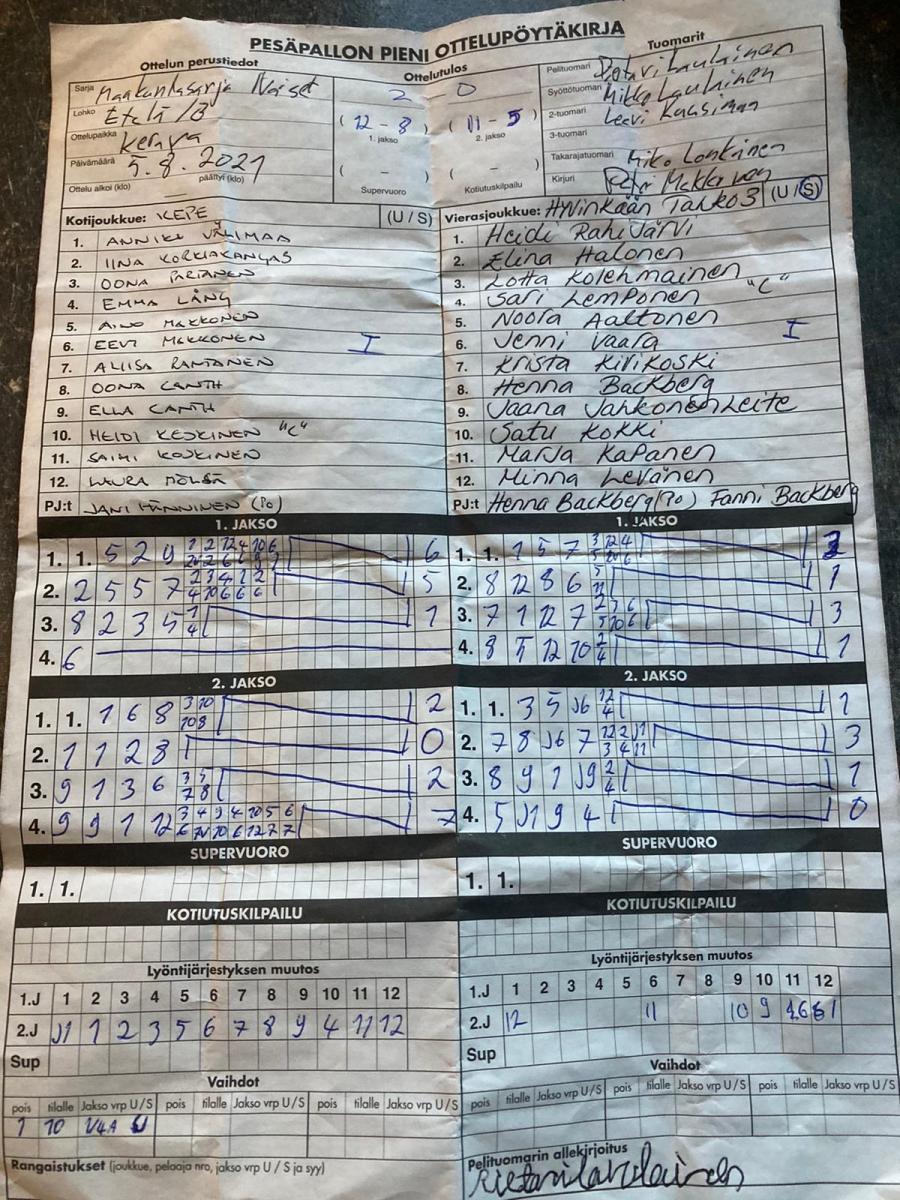 PESÄPALLON PIENI OTTELUPÖYTÄKIRJA
Ottelun perustiedot
Sarja Maakuntasarja Naiset
Lohko Etelä /B
Ottelupaikka Kerava
Päivämäärä 5.8.2021
Ottelu alkoi (klo) päättyi (klo)
Ottelutulos
2 - 0
( 12 - 8 ) ( 11 - 5 )
1. jakso 2. jakso
( - ) ( - )
Supervuoro Kotiutuskilpailu
Tuomarit
Pelituomari
Syöttötuomari Mikko Laulainen
2-tuomari Leevi
3-tuomari
Takarajatuomari Miko Lonkinen
Kirjuri
Kotijoukkue: KEPE (U / S)
1. ANNIKA VÄLIMAA
2. IINA KORKIAKANGAS
3. OONA PARTANEN
4. EMMA LÅNG
5. AINO MAKKONEN
6. EEVI MAKKONEN I
7. ALIISA RANTANEN
8. OONA CANTH
9. ELLA CANTH
10. HEIDI KESKINEN "C"
11. SAIMI KOSKINEN
12. LAURA
PJ:t JANI HÄNNINEN (Po)
Vierasjoukkue: Hyvinkään Tahko 3 (U / S)
1. Heidi Rahijärvi
2. Elina Halonen
3. Lotta Kolehmainen
4. Sari Lemponen "C"
5. Noora Aaltonen
6. Jenni Vaara I
7. Krista Kivikoski
8. Henna Backberg
9. Jaana Jahkonen Leite
10. Satu Kokki
11. Marja Kapanen
12. Minna Levänen
PJ:t Henna Backberg (Po) Fanni Backberg
1. JAKSO
1. 1. 5 2 9 6
2. 2 5 5 7 5
3. 8 2 3 5 1
4. 6
1. JAKSO
1. 1. 1 5 7
2. 8 12 8 6 1
3. 7 1 12 7 3
4. 8 5 12 10 1
2. JAKSO
1. 1. 1 6 8 2
2. 1 1 2 8 0
3. 9 1 3 6 2
4. 9 9 1 12 7
2. JAKSO
1. 1. 3 5 J6 1
2. 7 8 J6 7 3
3. 8 9 1 J9 1
4. 5 J1 9 4 0
SUPERVUORO
1. 1.
SUPERVUORO
1. 1.
KOTIUTUSKILPAILU
KOTIUTUSKILPAILU
Lyöntijärjestyksen muutos
1.J 1 2 3 4 5 6 7 8 9 10 11 12
2.J J1 1 2 3 5 6 7 8 9 4 11 12
Sup
Lyöntijärjestyksen muutos
1.J 1 2 3 4 5 6 7 8 9 10 11 12
2.J 12 11 10 9
Sup
Vaihdot
pois tilalle Jakso vrp U / S pois tilalle Jakso vrp U / S pois tilalle Jakso vrp U / S
1 10
Vaihdot
pois tilalle Jakso vrp U / S pois tilalle Jakso vrp U / S pois tilalle Jakso vrp U / S
Rangaistukset (joukkue, pelaaja nro, jakso vrp U / S ja syy)
Pelituomarin allekirjoitus